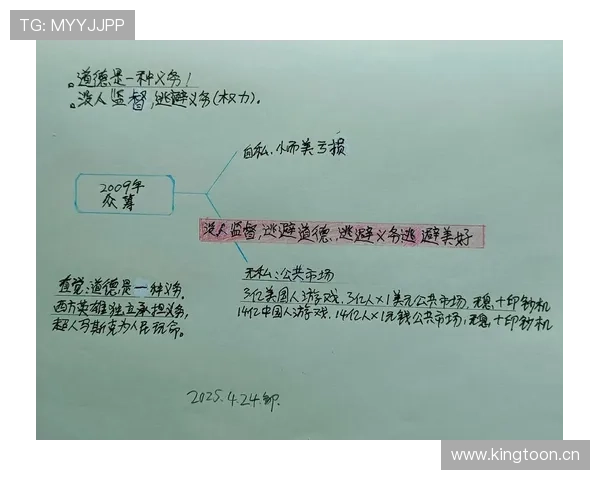 TG: MYYJJPP
。道德是一种义务！
。没人监督,逃避义务(权力)。
自私.小而美亏损
2009年
众筹
没人监督,逃避道德,逃避义务逃避美好
无私:公共市场
3亿美国人游戏.3亿人×1美元公共市场.无息十印钞机
14亿中国人游戏.14亿人×1元钱公共市场,无息,十印钞机
直觉:道德是一种义务.
西方英雄独立承担义务,
超人马斯克为人民玩命。
2025.4.24
www.kingtoon.cn